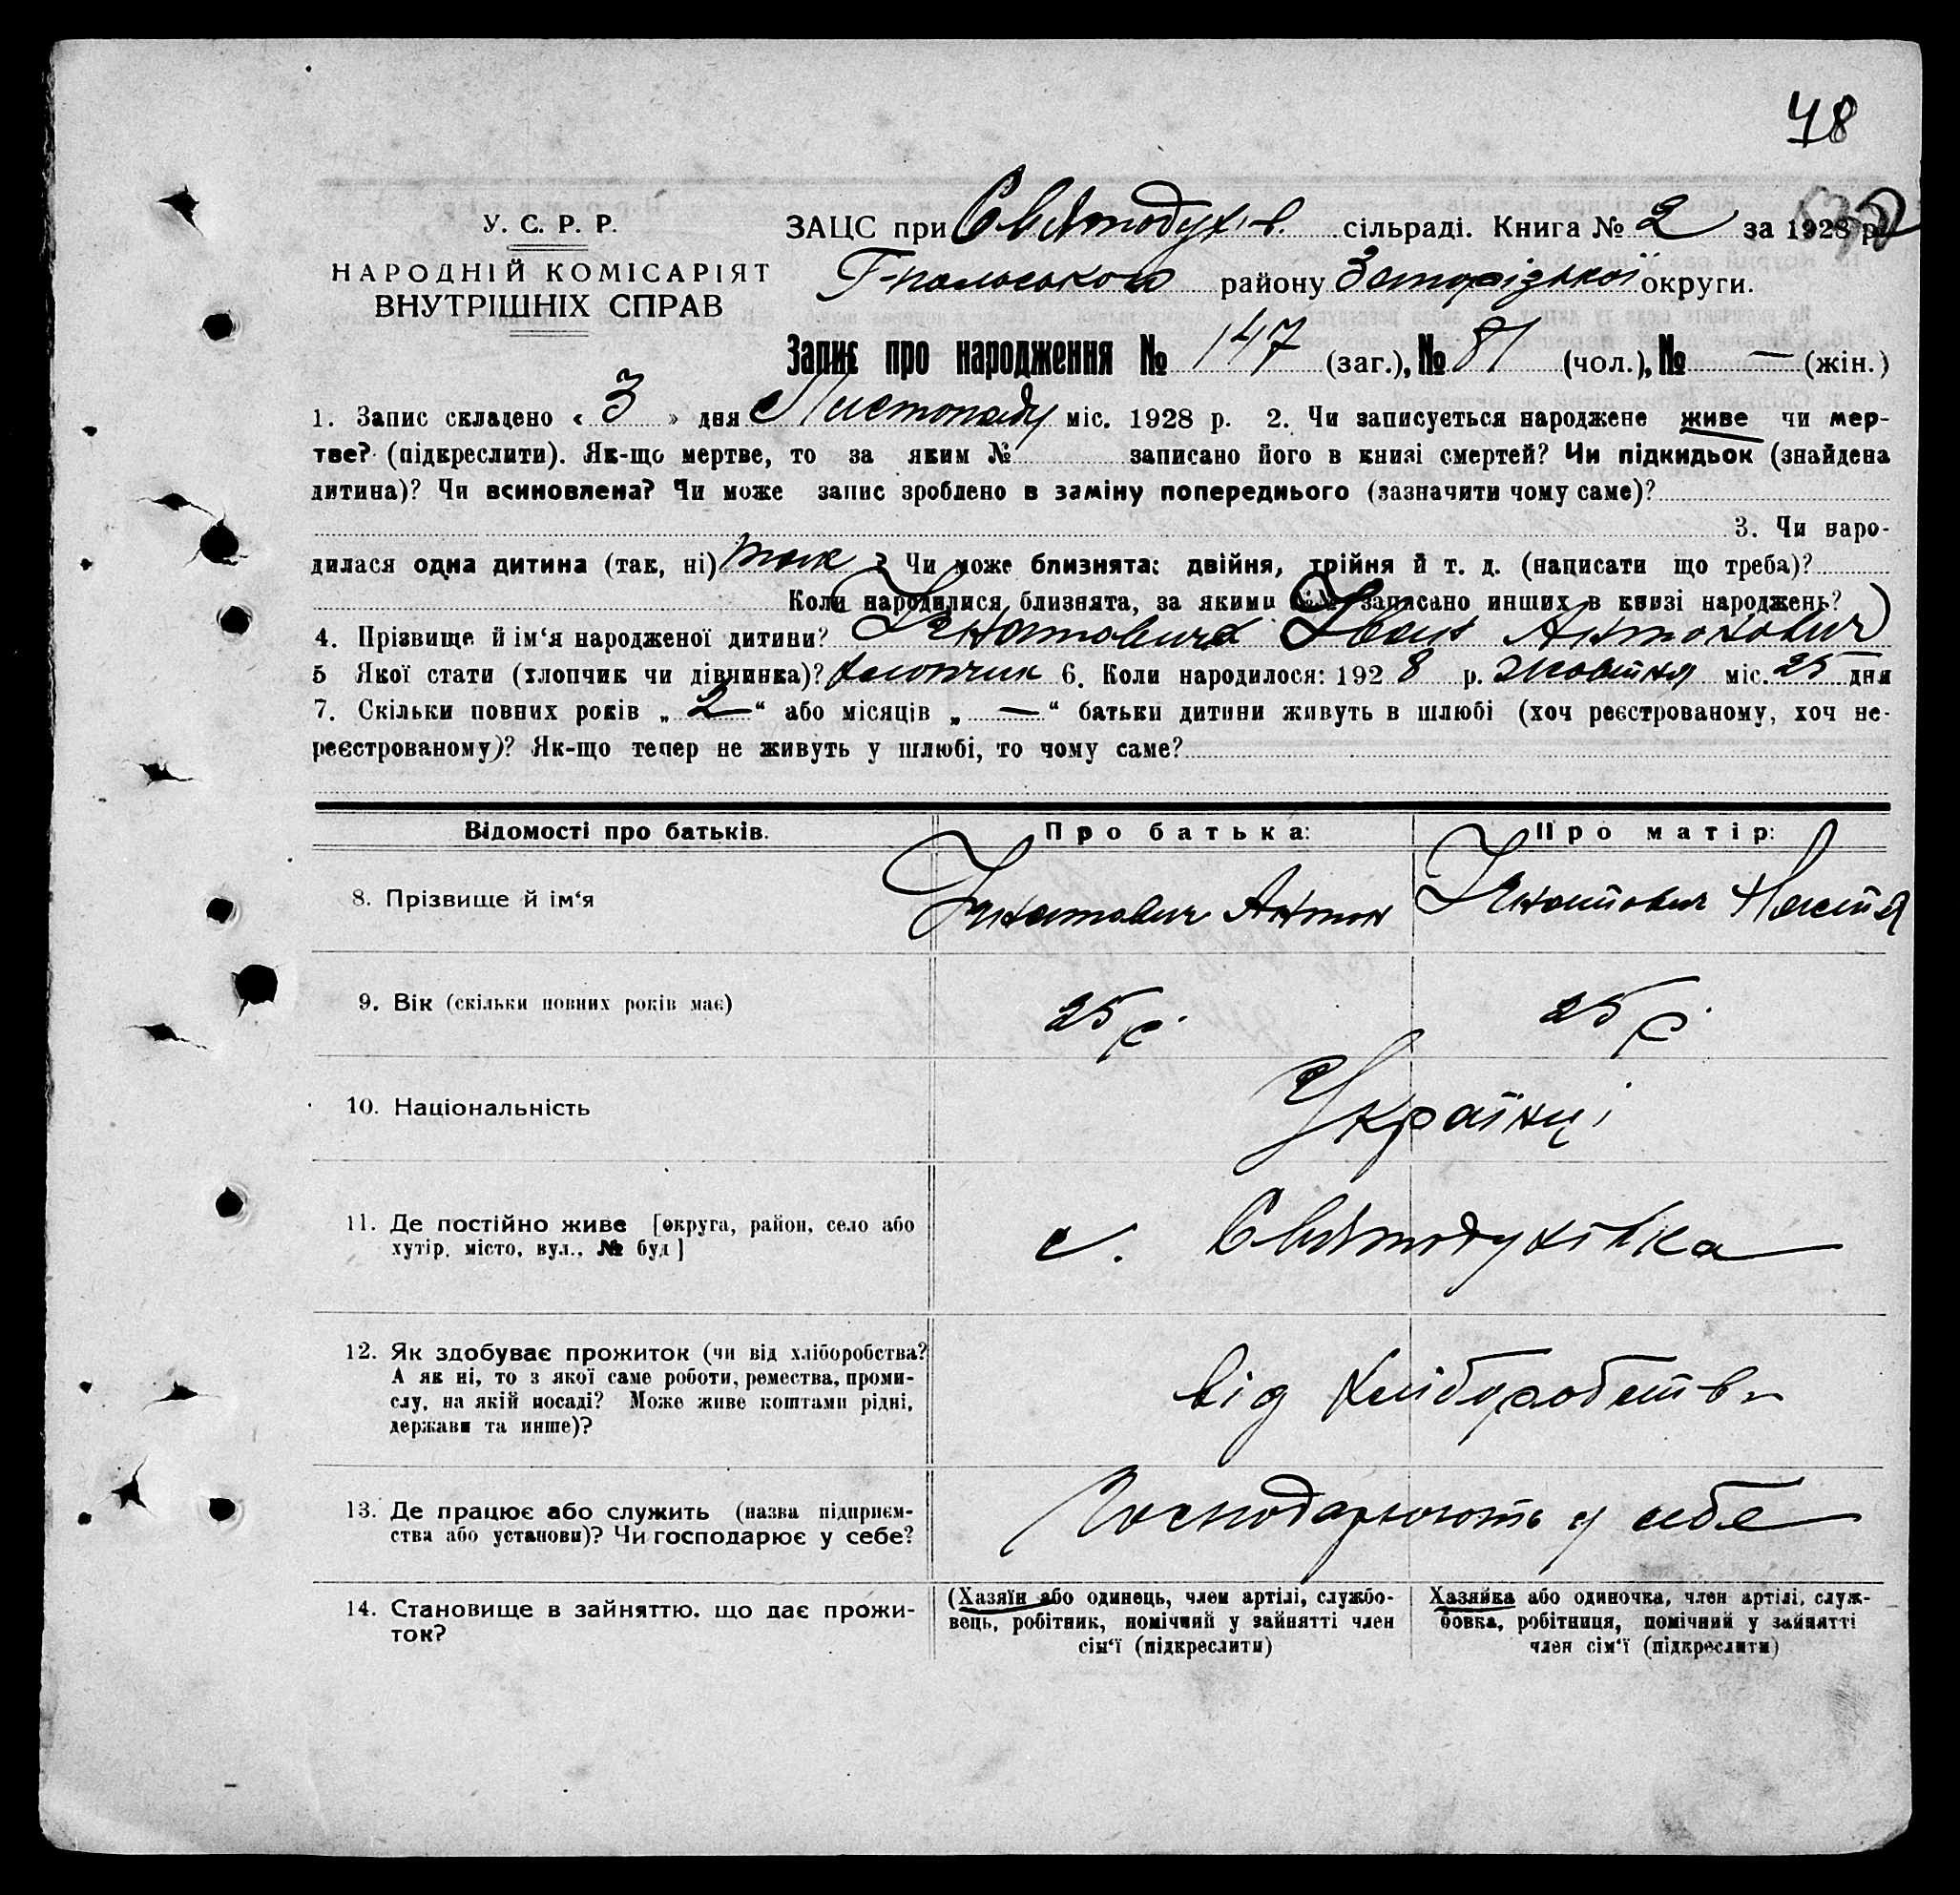 48
У. С. Р. Р.
НАРОДНІЙ КОМІСАРІЯТ
ВНУТРІШНІХ СПРАВ
ЗАЦС при Святодухів. сільраді. Книга № 2 за 1928 р.
Г-польського району Запорізької округи.
Запис про народження № 147 (заг.), № 81 (чол.), № — (жін.)
1. Запис складено « 3 » дня Листопаду міс. 1928 р. 2. Чи записується народжене живе чи мер-
тве? (підкреслити). Як-що мертве, то за яким № записано його в книзі смертей? Чи підкидьок (знайдена
дитина)? Чи всиновлена? Чи може запис зроблено в заміну попереднього (зазначити чому саме)?
3. Чи наро-
дилася одна дитина (так, ні) так ? Чи може близнята: двійня, трійня й т. д. (написати що треба)?
Коли народилися близнята, за якими №№ записано инших в книзі народжень?
4. Прізвище й ім‘я народженої дитини? Ігнатович Іван Антонович
5 Якої стати (хлопчик чи дівчинка)? хлопчик 6. Коли народилося: 1928 р. жовтня міс. 25 дня
7. Скільки повних років „ 2 “ або місяців „ — “ батьки дитини живуть в шлюбі (хоч реєстрованому, хоч не-
реєстрованому)? Як-що тепер не живуть у шлюбі, то чому саме?
Відомості про батьків. Про батька: Про матір:
8. Прізвище й ім‘я Ігнатович Антон Ігнатович Настя
9. Вік (скільки повних років має) 25 р. 25 р.
10. Національність Українці
11. Де постійно живе [округа, район, село або
хутір, місто, вул., № буд] с. Святодухівка
12. Як здобуває прожиток (чи від хліборобства?
А як ні, то з якої саме роботи, ремества, проми-
слу, на якій посаді? Може живе коштами рідні,
держави та инше)? від хліборобства
13. Де працює або служить (назва підприєм-
ства або установи)? Чи господарює у себе? Господарюють у себе
14. Становище в зайняттю, що дає прожи-
ток?
(Хазяїн або одинець, член артілі, службо-
вець, робітник, помічний у зайнятті член
сім‘ї (підкреслити)
Хазяйка або одиночка, член артілі, служ-
бовка, робітниця, помічний у зайнятті
член сім‘ї (підкреслити)